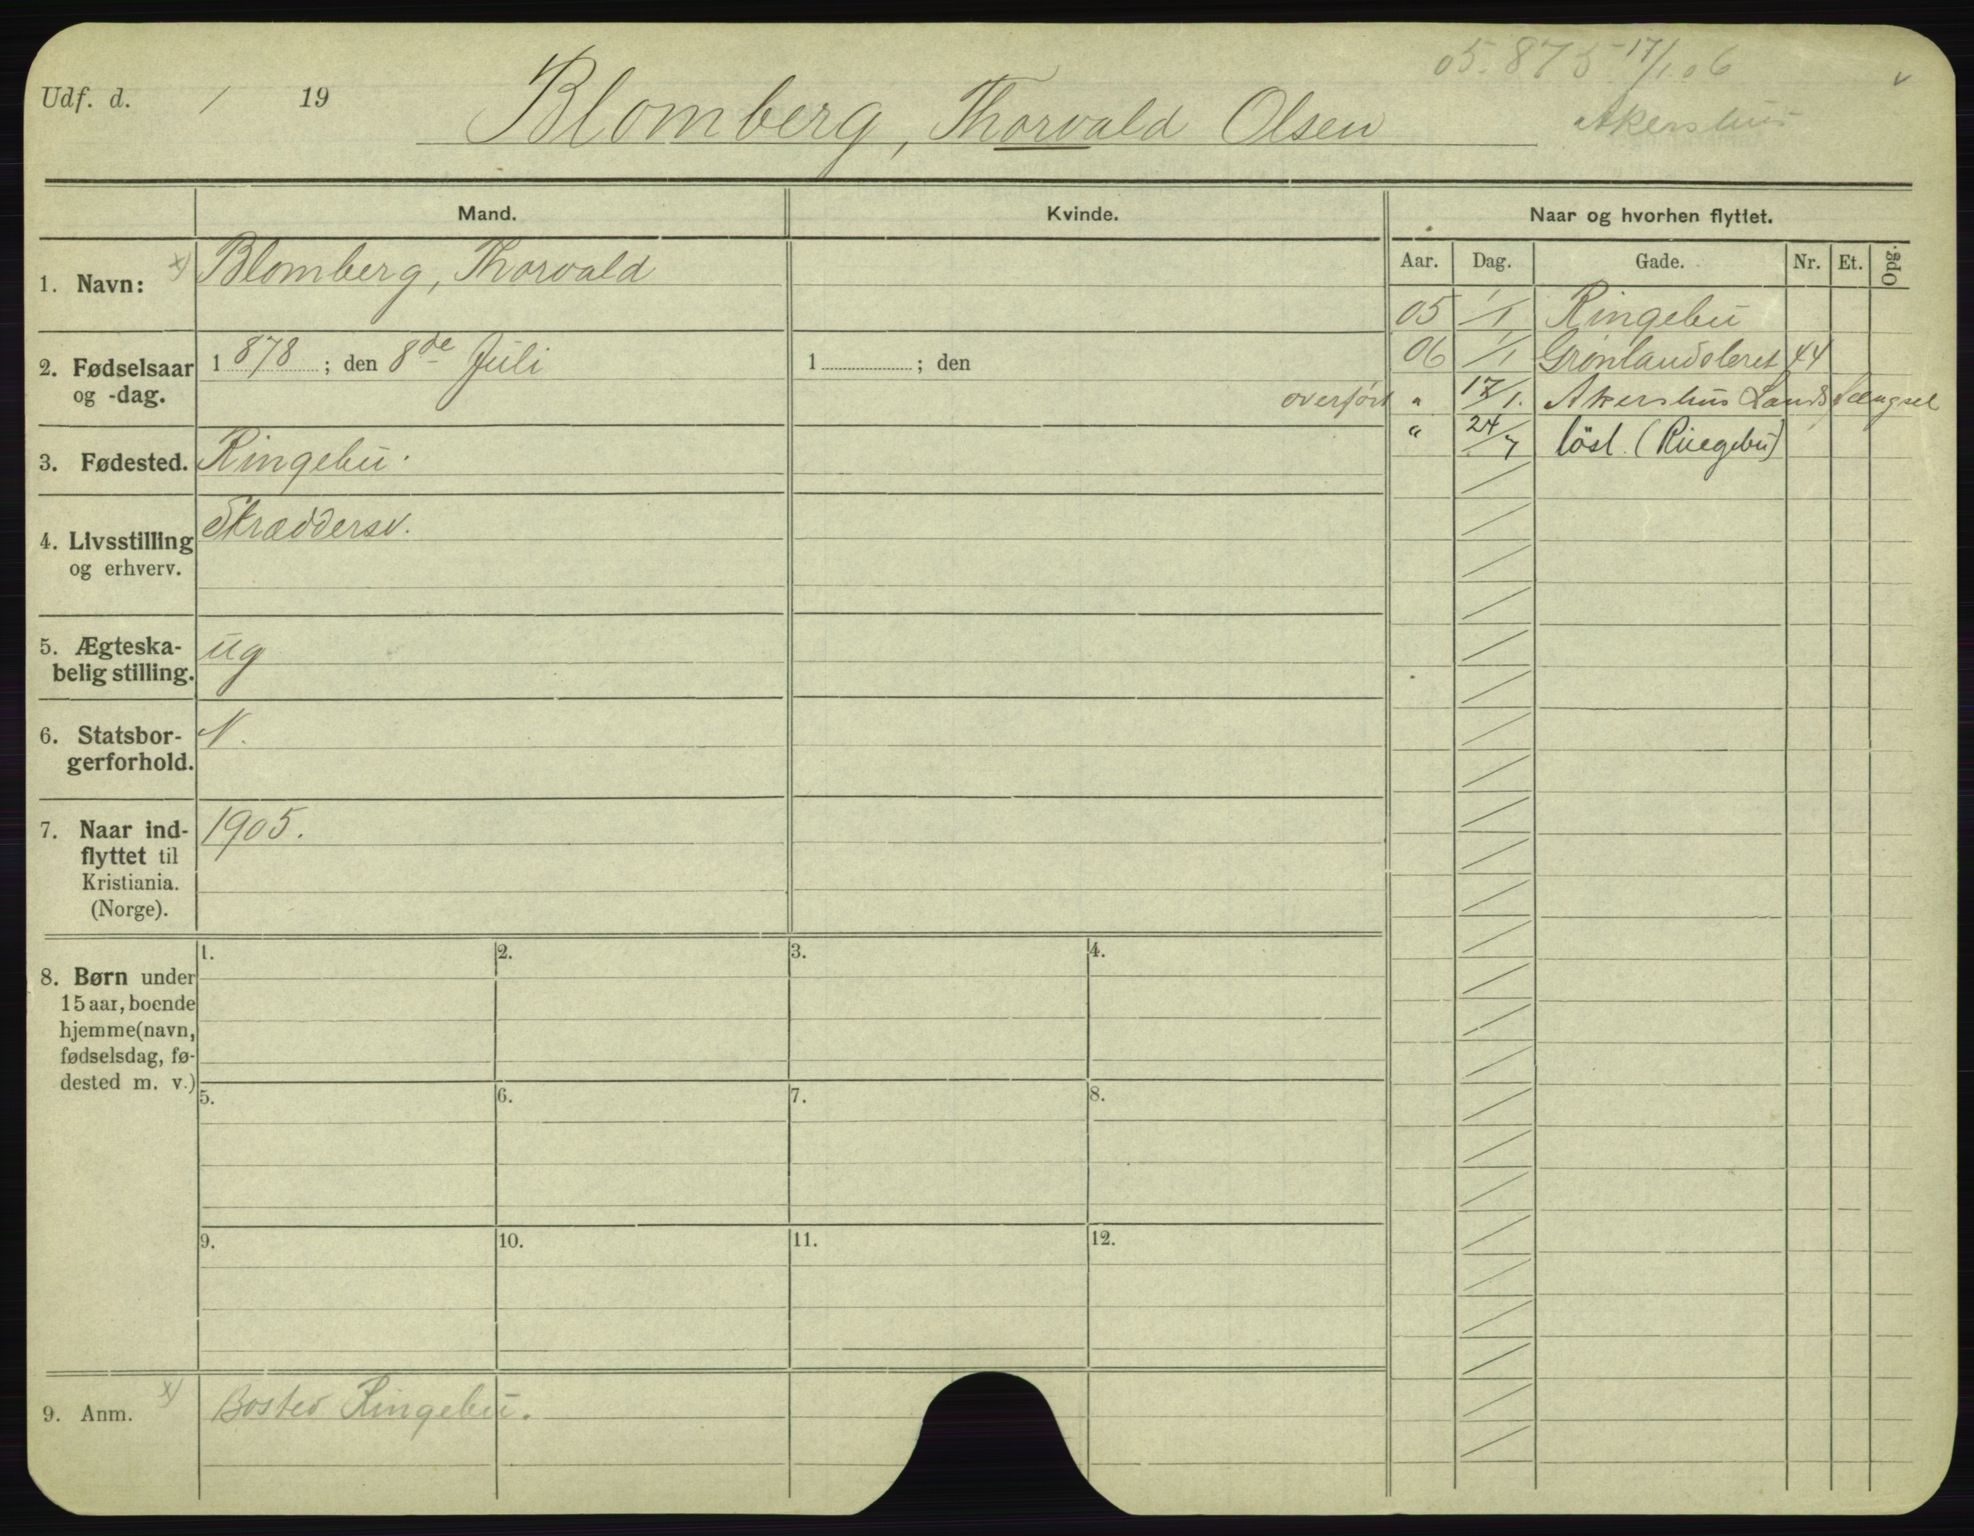 05. 875 17/1.06
Udf. d. / 19 Blomberg, Thorvald Olsen
Akershus
Mand. Kvinde. Naar og hvorhen flyttet.
Aar. Dag. Gade. Nr. Et. Opg.
1. Navn: x) Blomberg, Thorvald
05 1/1 Ringebu
2. Fødselsaar 1878; den 8de Juli 1 ; den
og -dag.
06 1/1 Grønlandsleret 44
overført " 17/1. Akershus Landsfængsel
" 24/7 løsl. (Ringebu)
3. Fødested. Ringebu.
4. Livsstilling Skræddersv.
og erhverv.
5. Ægteska- ug
belig stilling.
6. Statsbor- N.
gerforhold.
7. Naar ind- 1905.
flyttet til
Kristiania.
(Norge).
8. Børn under
15 aar, boende
hjemme (navn,
fødselsdag, fø-
dested m. v.)
1. 2. 3. 4.
5. 6. 7. 8.
9. 10. 11. 12.
9. Anm. x) Bosted Ringebu.